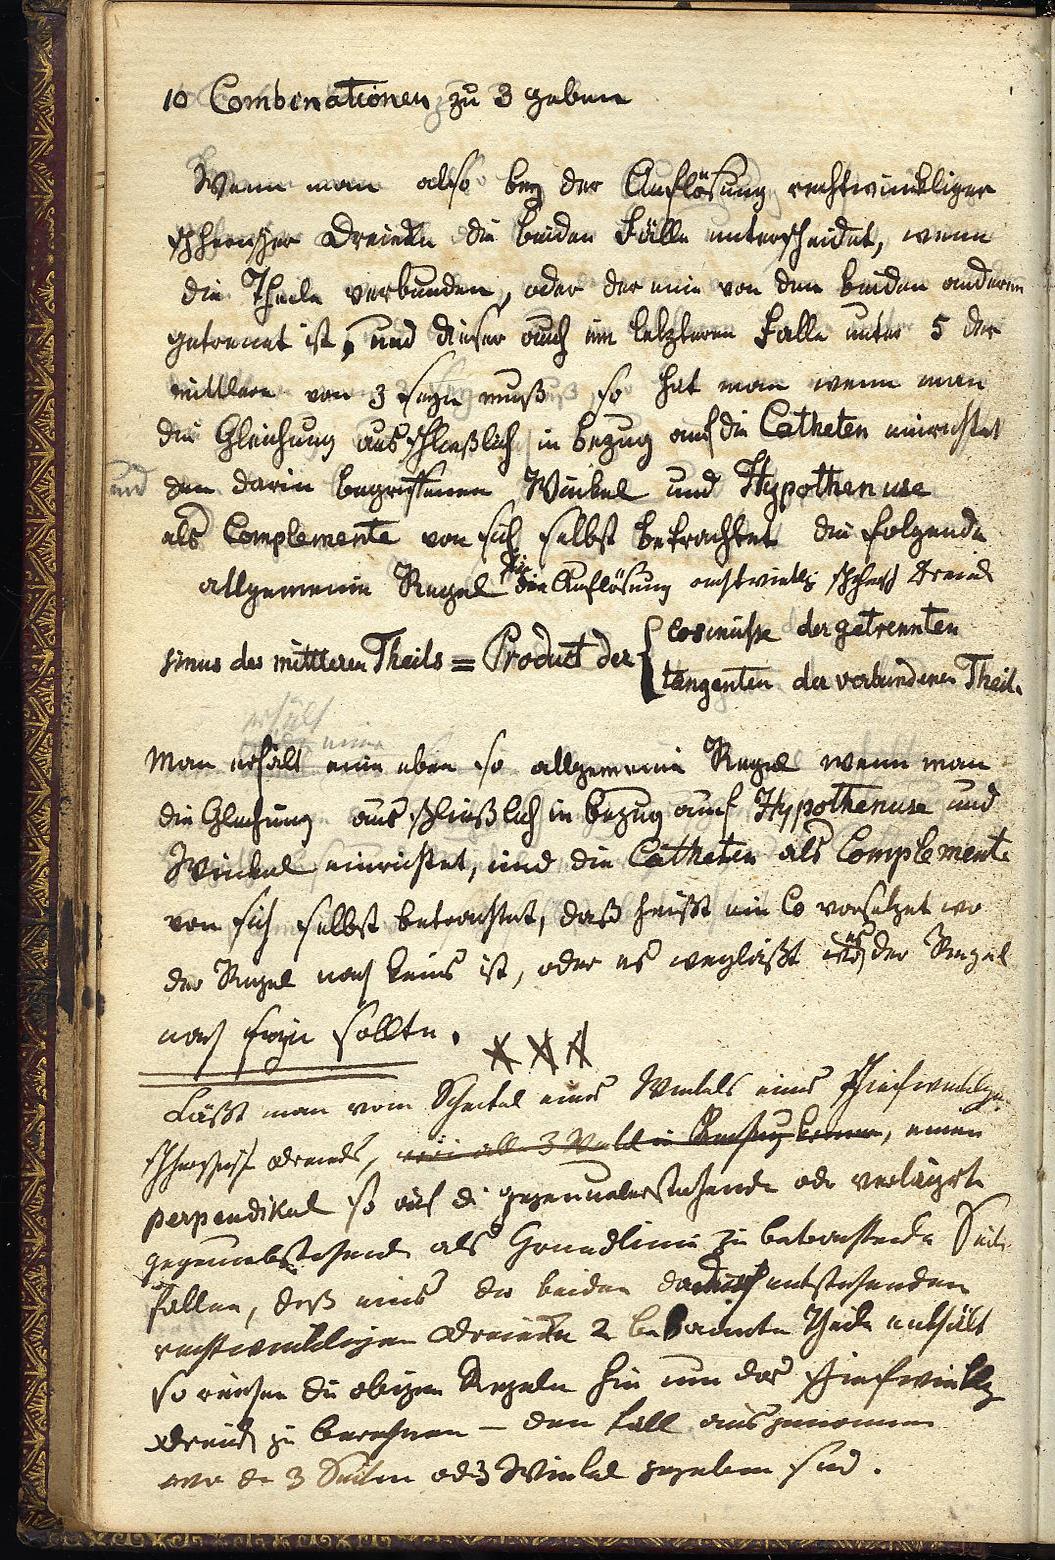 10 Combinationen zu 3 geben
Wenn man also bey der Auflösung rechtwinkliger
sphärischer Dreiecke die beiden Fälle unterscheidet, wenn
die Theile verbunden, oder der eine von den beiden anderen
getrennt ist, und dieser auch im letzteren Falle unter 5 der
mittlere von 3 seyn muß, so hat man wenn man
die Gleichung ausschließlich in bezug auf die Catheten einrichtet
und den darin begriffenen Winkel und Hypothenuse
als Complemente von sich selbst betrachtet die folgende
allgemeine Regel für die Auflösung rechtwinklig sphärisch Dreiecks
sinus des mittleren Theils = Product der { cosinusse der getrennten
tangenten der verbundenen Theile
erhält
eine
Man erhält eine eben so allgemeine Regel wenn man
die Gleichung ausschließlich in bezug auf Hypothenuse und
Winkel einrichtet, und die Catheten als Complemente
von sich selbst betrachtet, daß heißt ein Co vorsetzet wo
der Regel nach keins ist, oder es wegläßt wo es der Regel
nach seyn sollte.
Läßt man vom Scheitel eines Winkels eines schiefwinkligen
sphärisch Dreiecks, einen
perpendikel so auf die gegenueberstehende oder verlängerte
gegenuebstehende als Grundlinie zu betrachtende Seite
fallen, daß eins der beiden dadurch entstehenden
rechtwinkligen Dreiecke 2 bekannte Theile enthält
so reichen die obigen Regeln hin um das schiefwinklig
Dreieck zu berechnen – den Fall ausgenommen
wo die 3 Seiten od 3 Winkel gegeben sind.